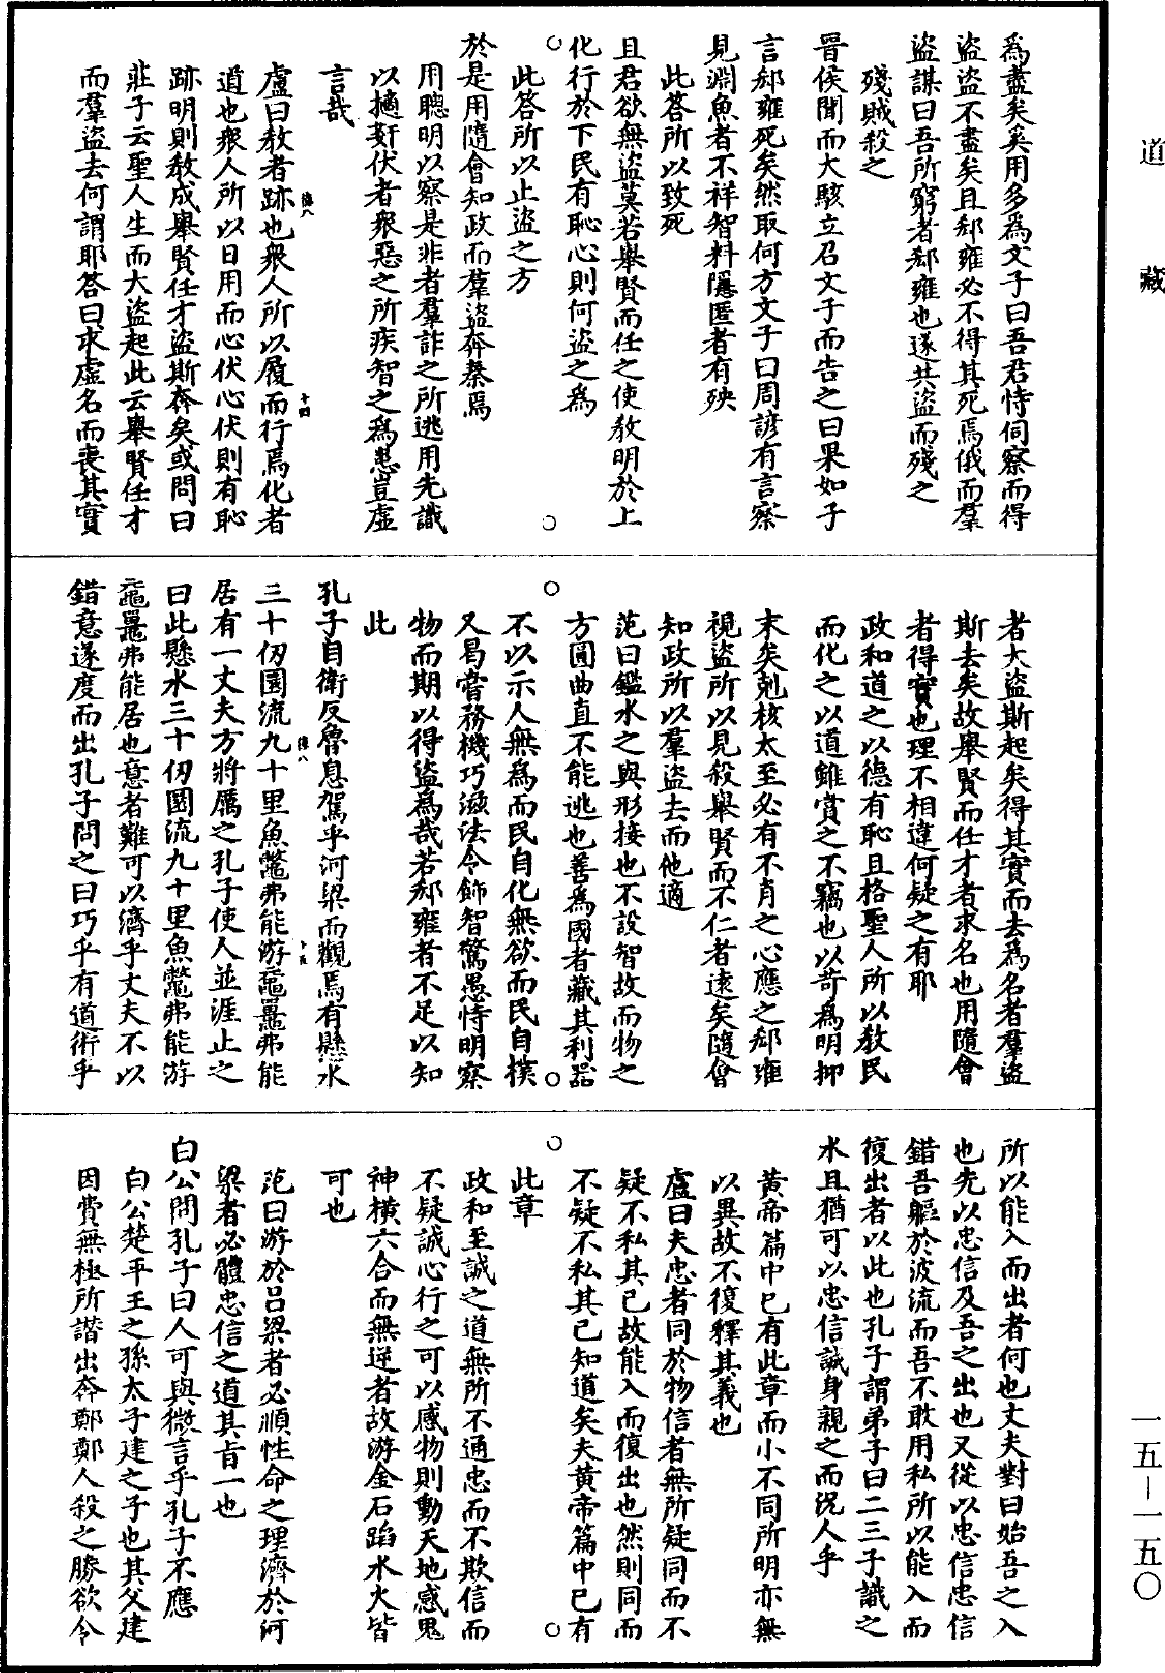 道藏
爲盡矣奚用多爲文子曰吾君恃伺察而得
盜盜不盡矣且郄雍必不得其死焉俄而羣
盜謀曰吾所窮者郄雍也遂共盜而殘之
殘賊殺之
晉侯聞而大駭立召文子而告之曰果如子
言郄雍死矣然取何方文子曰周諺有言察
見淵魚者不祥智料隱匿者有殃
此答所以致死
且君欲無盜莫若舉賢而任之使教明於上
化行於下民有恥心則何盜之爲
此答所以止盜之方
於是用隨會知政而羣盜奔秦焉
用聰明以察是非者羣詐之所逃用先識
以擿姧伏者衆惡之所疾智之爲患豈虛
言哉
盧曰教者跡也衆人所以履而行焉化者
道也衆人所以日用而心伏心伏則有恥
跡明則教成舉賢任才盜斯奔矣或問曰
莊子云聖人生而大盜起此云舉賢任才
而羣盜去何謂耶答曰求虛名而喪其實
者大盜斯起矣得其實而去爲名者羣盜
斯去矣故舉賢而任才者求名也用隨會
者得實也理不相違何疑之有耶
政和道之以德有恥且格聖人所以教民
而化之以道雖賞之不竊也以苛爲明抑
末矣剋核太至必有不肖之心應之郄雍
視盜所以見殺舉賢而不仁者遠矣隨會
知政所以羣盜去而他適
范曰鑑水之與形接也不設智故而物之
方圓曲直不能逃也善爲國者藏其利器
不以示人無爲而民自化無欲而民自樸
又曷嘗務機巧滋法令飾智驚愚恃明察
物而期以得盜爲哉若郄雍者不足以知
此
孔子自衛反魯息駕乎河梁而觀焉有懸水
三十仞圜流九十里魚鼈弗能游黿鼉弗能
居有一丈夫方將厲之孔子使人並涯止之
曰此懸水三十仞圜流九十里魚鼈弗能游
黿鼉弗能居也意者難可以濟乎丈夫不以
錯意遂度而出孔子問之曰巧乎有道術乎
所以能入而出者何也丈夫對曰始吾之入
也先以忠信及吾之出也又從以忠信忠信
錯吾軀於波流而吾不敢用私所以能入而
復出者以此也孔子謂弟子曰二三子識之
水且猶可以忠信誠身親之而況人乎
黃帝篇中已有此章而小不同所明亦無
以異故不復釋其義也
盧曰夫忠者同於物信者無所疑同而不
疑不私其己故能入而復出也然則同而
不疑不私其己知道矣夫黃帝篇中已有
此章
政和至誠之道無所不通忠而不欺信而
不疑誠心行之可以感物則動天地感鬼
神橫六合而無逆者故游金石蹈水火皆
可也
范曰游於呂梁者必順性命之理濟於河
梁者必體忠信之道其旨一也
白公問孔子曰人可與微言乎孔子不應
白公楚平王之孫太子建之子也其父建
因費無極所譖出奔鄭鄭人殺之勝欲令
一五—一五〇